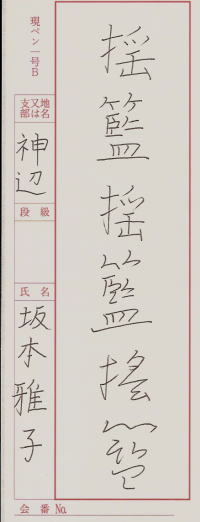 揺籃揺籃揺籃
現ペン一号B
地名又は支部
神辺
段級
氏名
坂本雅子
会番No.